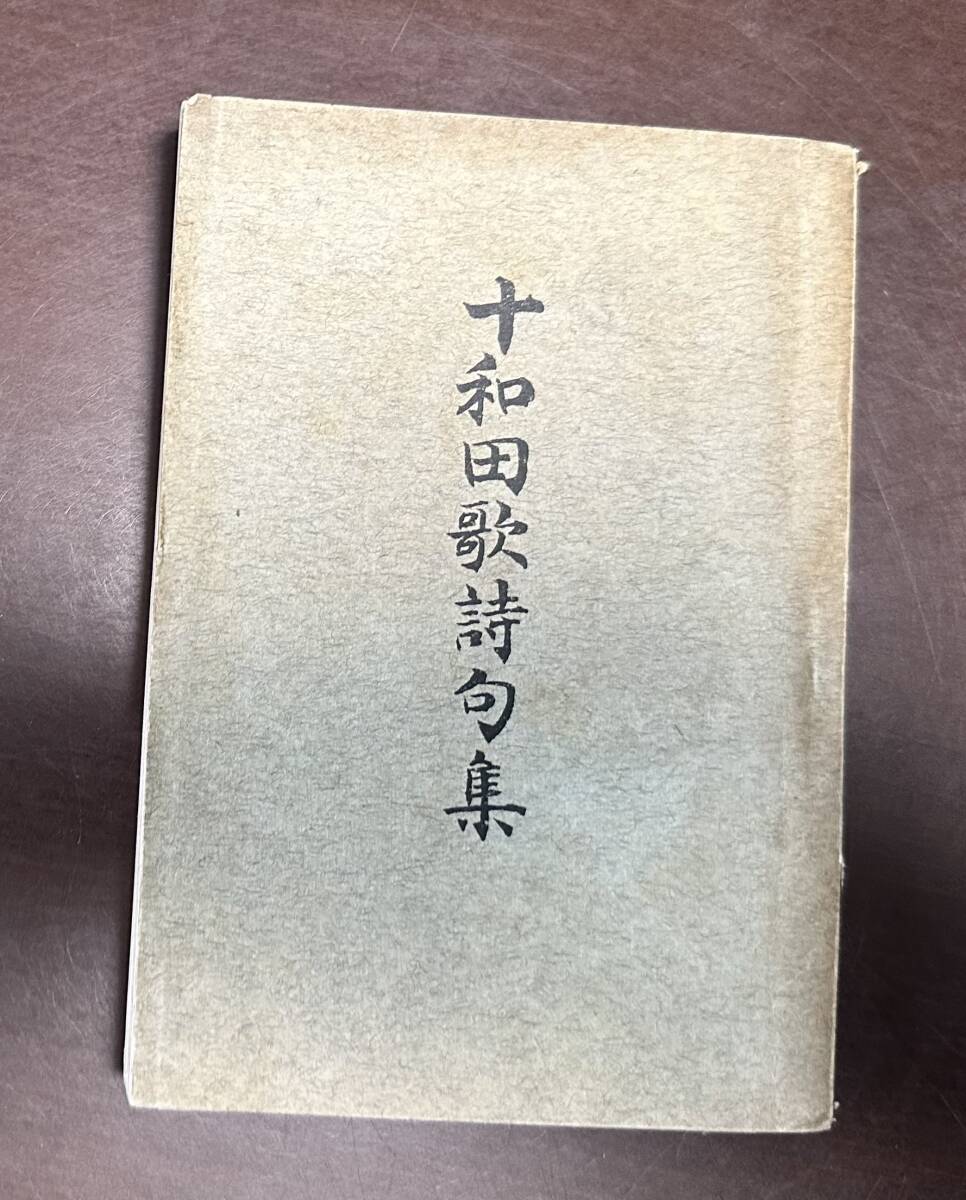 十和田歌詩句集